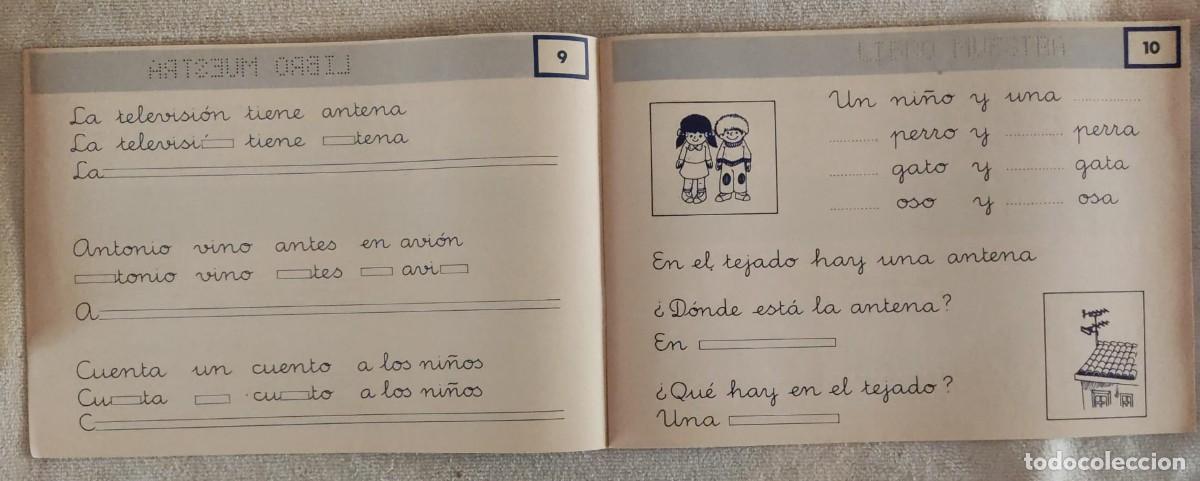 LIBRO MUESTRA
9
La televisión tiene antena
La televisi▭ tiene ▭tena
La
Antonio vino antes en avión
▭tonio vino ▭tes ▭ avi▭
A
Cuenta un cuento a los niños
Cu▭ta ▭ cu▭to a los niños
C
LIBRO MUESTRA
10
Un niño y una ..........
.......... perro y .......... perra
.......... gato y .......... gata
.......... oso y .......... osa
En el tejado hay una antena
¿Dónde está la antena?
En ▭
¿Qué hay en el tejado?
Una ▭
todocoleccion